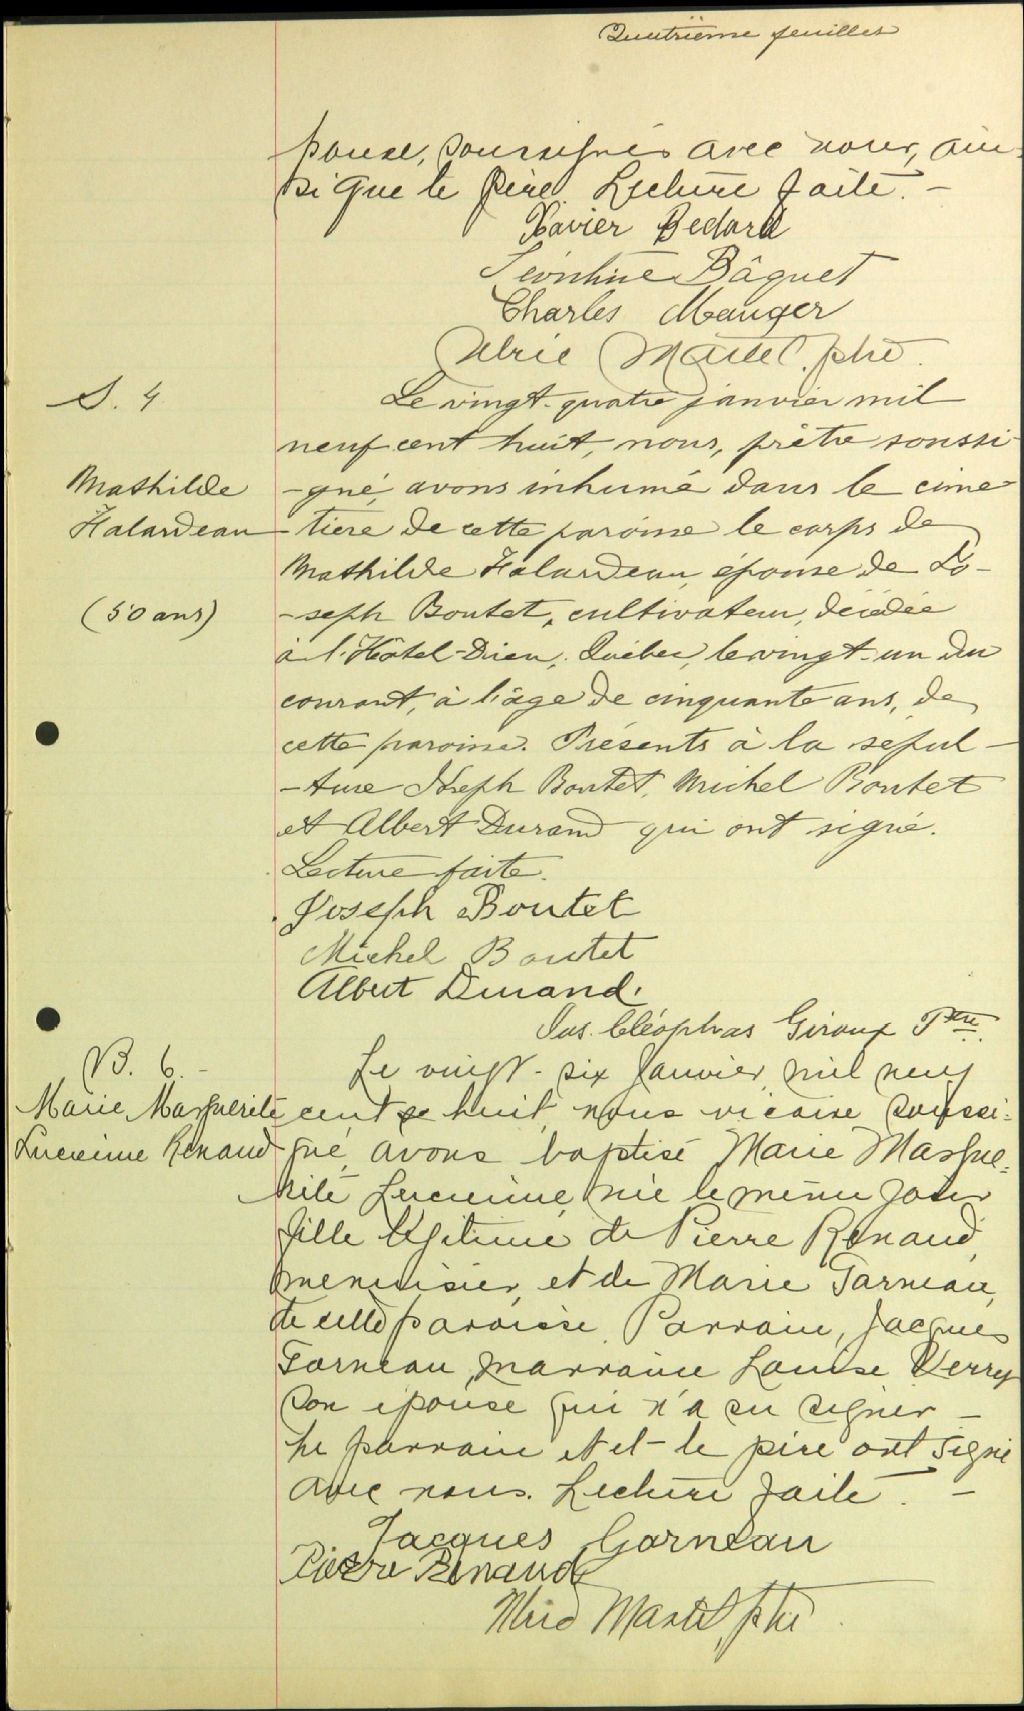 Quatrième feuillet
pouse, soussignés avec nous, ain-
si que le père Lecture faite. -
Xavier Bedard
Léontine Bâquet
Charles Mauger
Ulric Martel, ptre.
S. 4
Mathilde
Falardeau
(50 ans)
Le vingt-quatre janvier mil
neuf cent huit, nous, prêtre soussi-
-gné, avons inhumé dans le cime-
-tière de cette paroisse le corps de
Mathilde Falardeau, épouse de Jo-
-seph Boutet, cultivateur, décédée
à l'Hôtel-Dieu, Québec, le vingt-un du
courant, à l'âge de cinquante ans, de
cette paroisse. Présents à la sépul-
-ture Joseph Boutet, Michel Boutet
et Albert Durand qui ont signé.
Lecture faite.
Joseph Boutet
Michel Boutet
Albert Durand.
Jos. Cléophas Giroux Ptre.
B. 6. -
Marie Marguerite
Lucienne Renaud
Le vingt-six Janvier mil neuf
cent huit, nous vicaire soussi-
gné, avons baptisé Marie Margue-
rite Lucienne, née le même jour
fille légitime de Pierre Renaud,
menuisier, et de Marie Garneau,
de cette paroisse. Parrain, Jacques
Garneau, marraine Louise Verret
son épouse qui n'a su signer -
Le parrain et et le père ont signé
avec nous. Lecture faite. -
Jacques Garneau
Pierre Renaud
Ulric Martel, ptre.